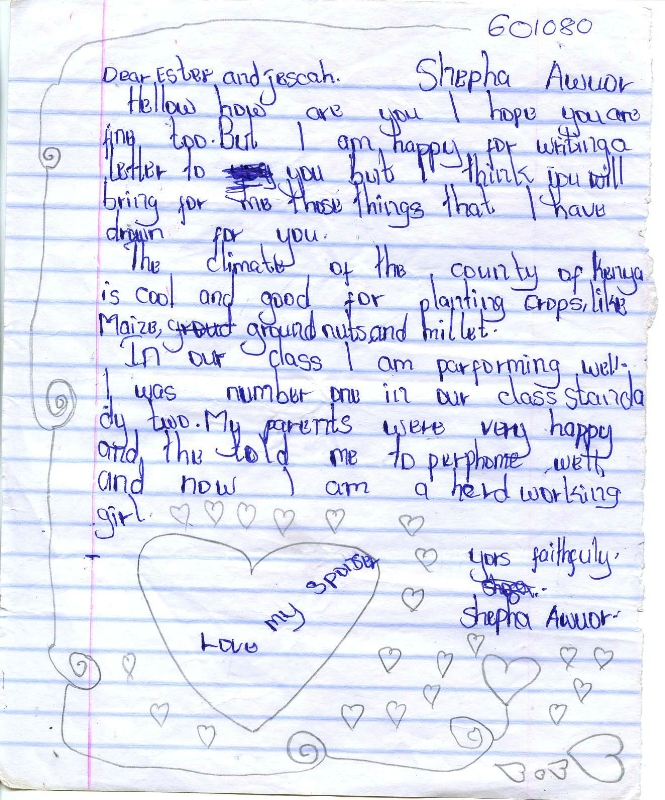 601080
Dear Ester and jescah. Shepha Awuor
Hellow how are you I hope you are
fine too. But I am happy for writing a
letter to you but I think you will
bring for me those things that I have
drawn for you.
The climate of the county of kenya
is cool and good for planting crops, like
Maize, groud ground nuts, and millet.
In our class I am parforming well.
I was number one in our class standa
dy two. My parents were very happy
and the told me to perphome well,
and now I am a herd working
girl.
yors faithfuly.
Shepha Awuor.
Love my sponser